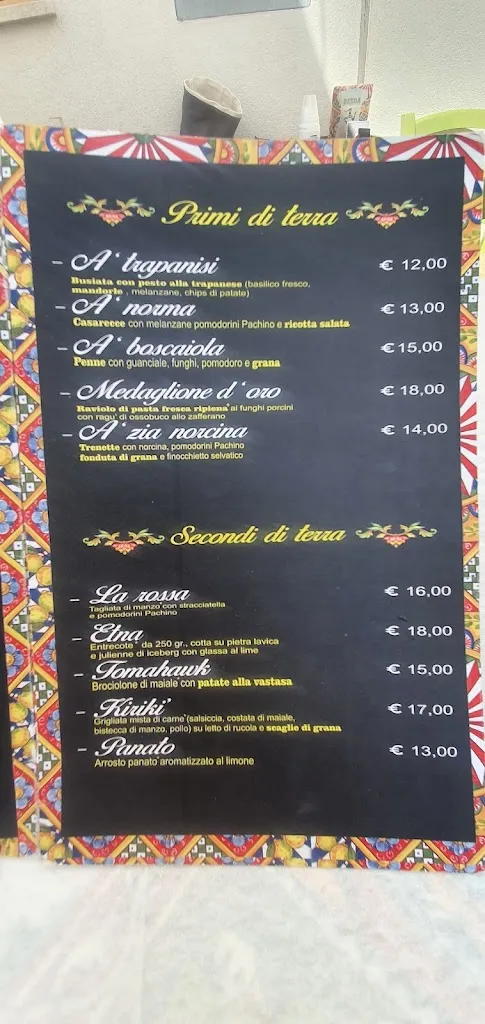 Primi di terra
- A' trapanisi € 12,00
Busiata con pesto alla trapanese (basilico fresco,
mandorle , melanzane, chips di patate)
- A' norma € 13,00
Casarecce con melanzane pomodorini Pachino e ricotta salata
- A' boscaiola €15,00
Penne con guanciale, funghi, pomodoro e grana
- Medaglione d'oro € 18,00
Raviolo di pasta fresca ripiena ai funghi porcini
con ragu' di ossobuco allo zafferano
- A' zia norcina € 14,00
Trenette con norcina, pomodorini Pachino
fonduta di grana e finocchietto selvatico
Secondi di terra
- La rossa € 16,00
Tagliata di manzo con stracciatella
e pomodorini Pachino
- Etna € 18,00
Entrecote' da 250 gr., cotta su pietra lavica
e julienne di iceberg con glassa al lime
- Tomahawk € 15,00
Brociolone di maiale con patate alla vastasa
- Kiriki' € 17,00
Grigliata mista di carne (salsiccia, costata di maiale,
bistecca di manzo, pollo) su letto di rucola e scaglie di grana
- Panato € 13,00
Arrosto panato aromatizzato al limone